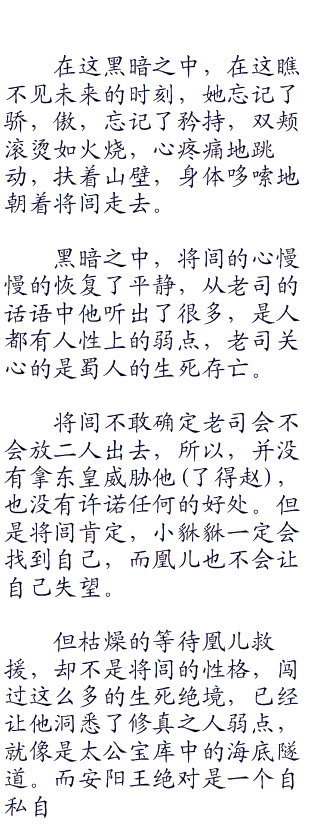 在这黑暗之中，在这瞧
不见未来的时刻，她忘记了
骄，傲，忘记了矜持，双颊
滚烫如火烧，心疼痛地跳
动，扶着山壁，身体哆嗦地
朝着将闾走去。
黑暗之中，将闾的心慢
慢的恢复了平静，从老司的
话语中他听出了很多，是人
都有人性上的弱点，老司关
心的是蜀人的生死存亡。
将闾不敢确定老司会不
会放二人出去，所以，并没
有拿东皇威胁他(了得赵)，
也没有许诺任何的好处。但
是将闾肯定，小貅貅一定会
找到自己，而凰儿也不会让
自己失望。
但枯燥的等待凰儿救
援，却不是将闾的性格，闯
过这么多的生死绝境，已经
让他洞悉了修真之人弱点，
就像是太公宝库中的海底隧
道。而安阳王绝对是一个自
私自